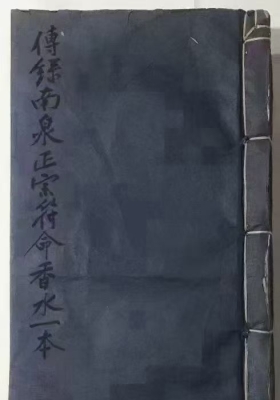 傳録南泉正宗符命香水一本